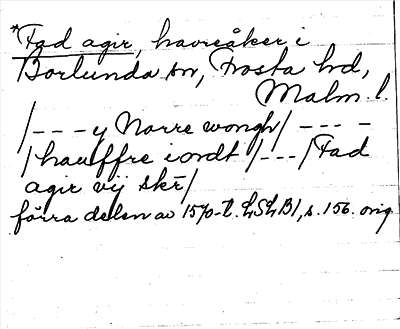 *Fad agir, havreåker i
Borlunda sn, Frosta hd,
Malm. l.
/- - - y Norre wongh/ - - - -
/hauffre iordt /---/ Fad
agir vij skr̄/
förra delen av 1570-t. LSLB1, s. 156. orig.